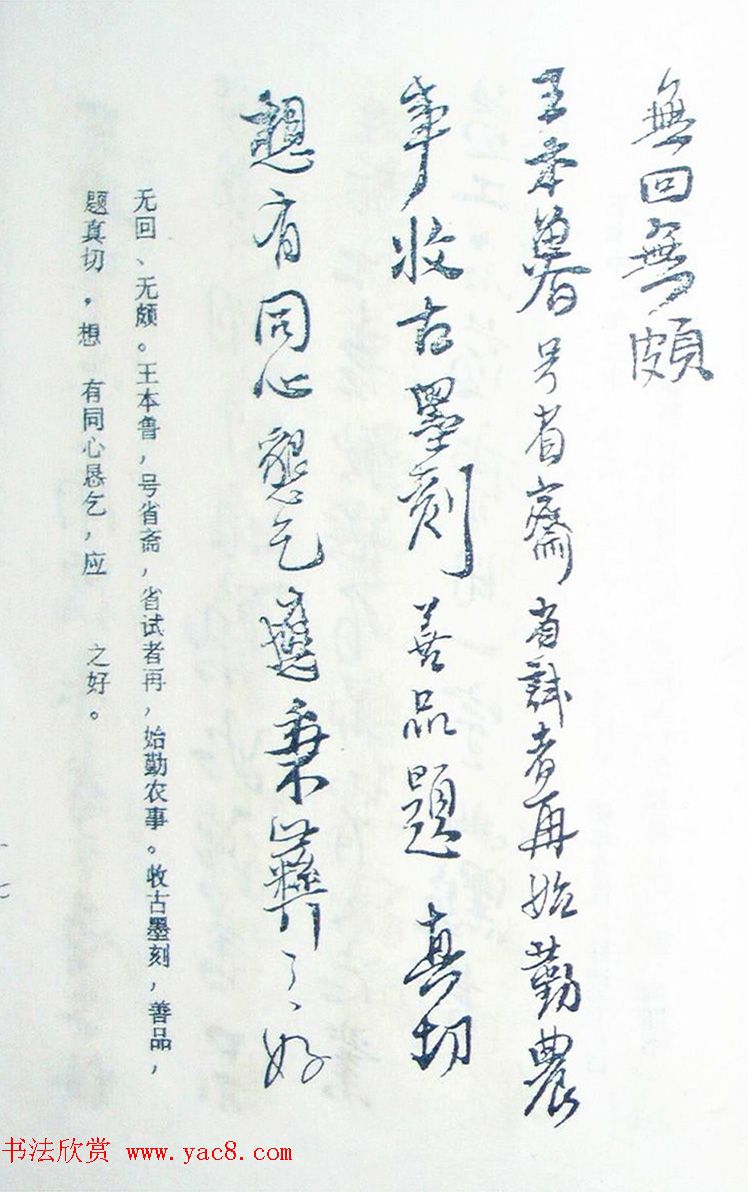 無回無頗
王本魯号省齋省試者再始勤農
事收古墨刻善品題真切
想有同心懇乞應秉彝之好
无回、无颇。王本鲁，号省斋，省试者再，始勤农事。收古墨刻，善品，
题真切，想 有同心恳乞，应 之好。
十七
书法欣赏 www.yac8.com